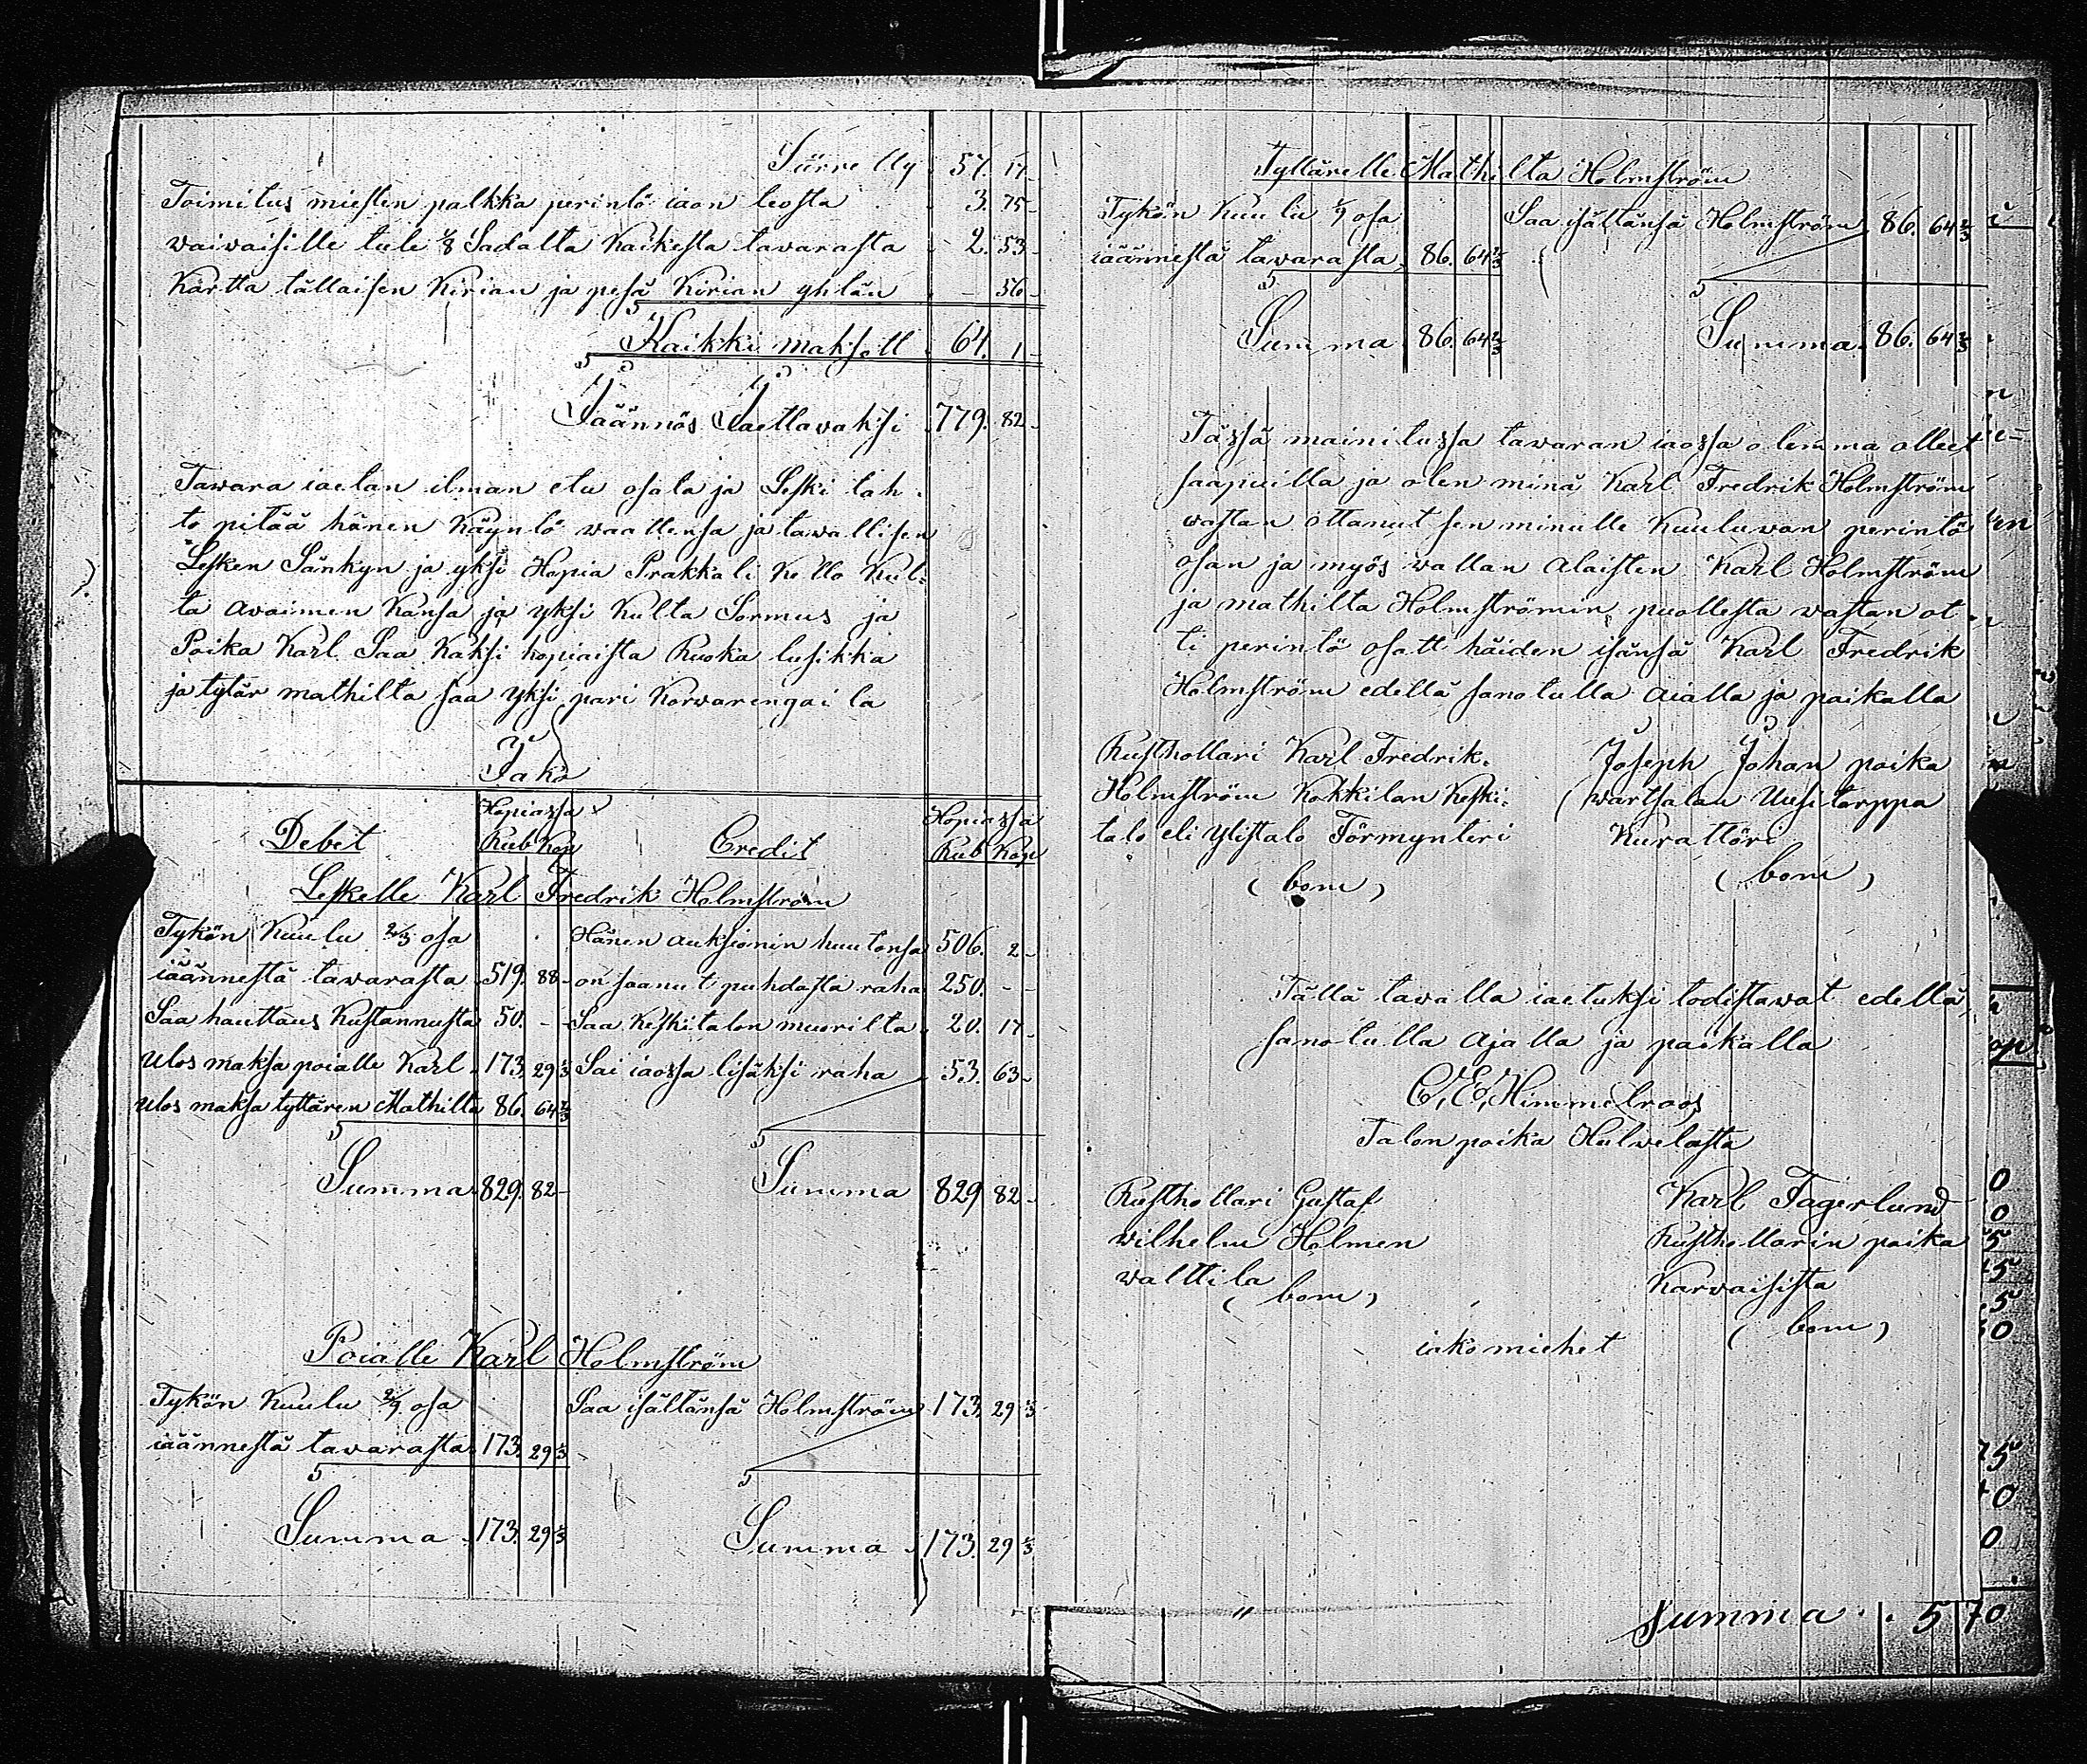 Siirretty 57. 17
Toimitus miesten palkka perintö iaon teosta 3. 75
waiwaisille tule 1/8 Sadalta Kaikesta tavarasta 2. 53
Kartta tällaisen Kirian ja pesä Kirian yhtän - 56
Kaikki maksott 64. 1
Jäännös Jaettavaksi 779. 82
Tawara iaetan ilman etu osata ja Leski tah-
to pitää hänen Käyntö waattensa ja tawallisen
Lesken Sänkyn ja yksi Hopia Prakkali Kello Kul-
ta avaimen Kansa ja yksi Kulta Sormus ja
Poika Karl Saa Kaksi hopiaista Ruoka lusikka
ja tytär mathilta saa yksi pari Korwarengaita
Jako
Debet Hopiassa Rub Kop Credit Hopiassa Rub Kop
Leskelle Karl Fredrik Holmström
Tykön Kuulu 2/3 osa Hänen auksionin huutonsa 506. 2
iäännestä tavarasta 519. 88 on saanut puhdasta raha 250. -
Saa hauttaus Kustannusta 50. - Saa Keskitalon muorilta 20. 17
Ulos maksa poialle Karl 173. 29 1/3 Sai iaossa lisäksi raha 53. 63
Ulos maksa tyttären Mathilta 86. 64 2/3
Summa 829. 82 Summa 829 82
Poialle Karl Holmström
Tykön Kuulu 2/9 osa Saa isältänsä Holmström 173. 29 1/3
iäännestä tavarasta 173. 29 1/3
Summa 173. 29 1/3 Summa 173. 29 1/3
Tyttärelle Mathilta Holmström
Tykön Kuulu 1/9 osa Saa isältänsä Holmström 86. 64 2/3
iäännestä tavarasta 86. 64 2/3
Summa 86. 64 2/3 Summa 86. 64 2/3
Tässä mainitussa tawaran iaossa olemma olleet
saapuilla ja olen minä Karl Fredrik Holmström
wastan ottanut sen minulle Kuuluvan perintö
osan ja myös vallan alaisten Karl Holmström
ja mathilta Holmströmin puollesta wastan ot-
ti perintö osatt häiden isänsä Karl Fredrik
Holmström edellä sanotulla aialla ja paikalla
Rusthollari Karl Fredrik Joseph Johan poika
Holmström Kokkilan Keski- wartsalan Uusitorppa
talo eli Ylistalo Förmynteri Kurattöri
(bom) (bom)
Tällä tavalla iaetuksi todistavat edellä
sanotulla ajalla ja paikalla
C, E, Himmelroos
Talon poika Hulwelasta
Rusthollari Gustaf Karl Fagerlund
wilhelm Holmen Rusthollarin poika
walttila Karvaisista
(bom) (bom)
iakomiehet
Summa 5 70